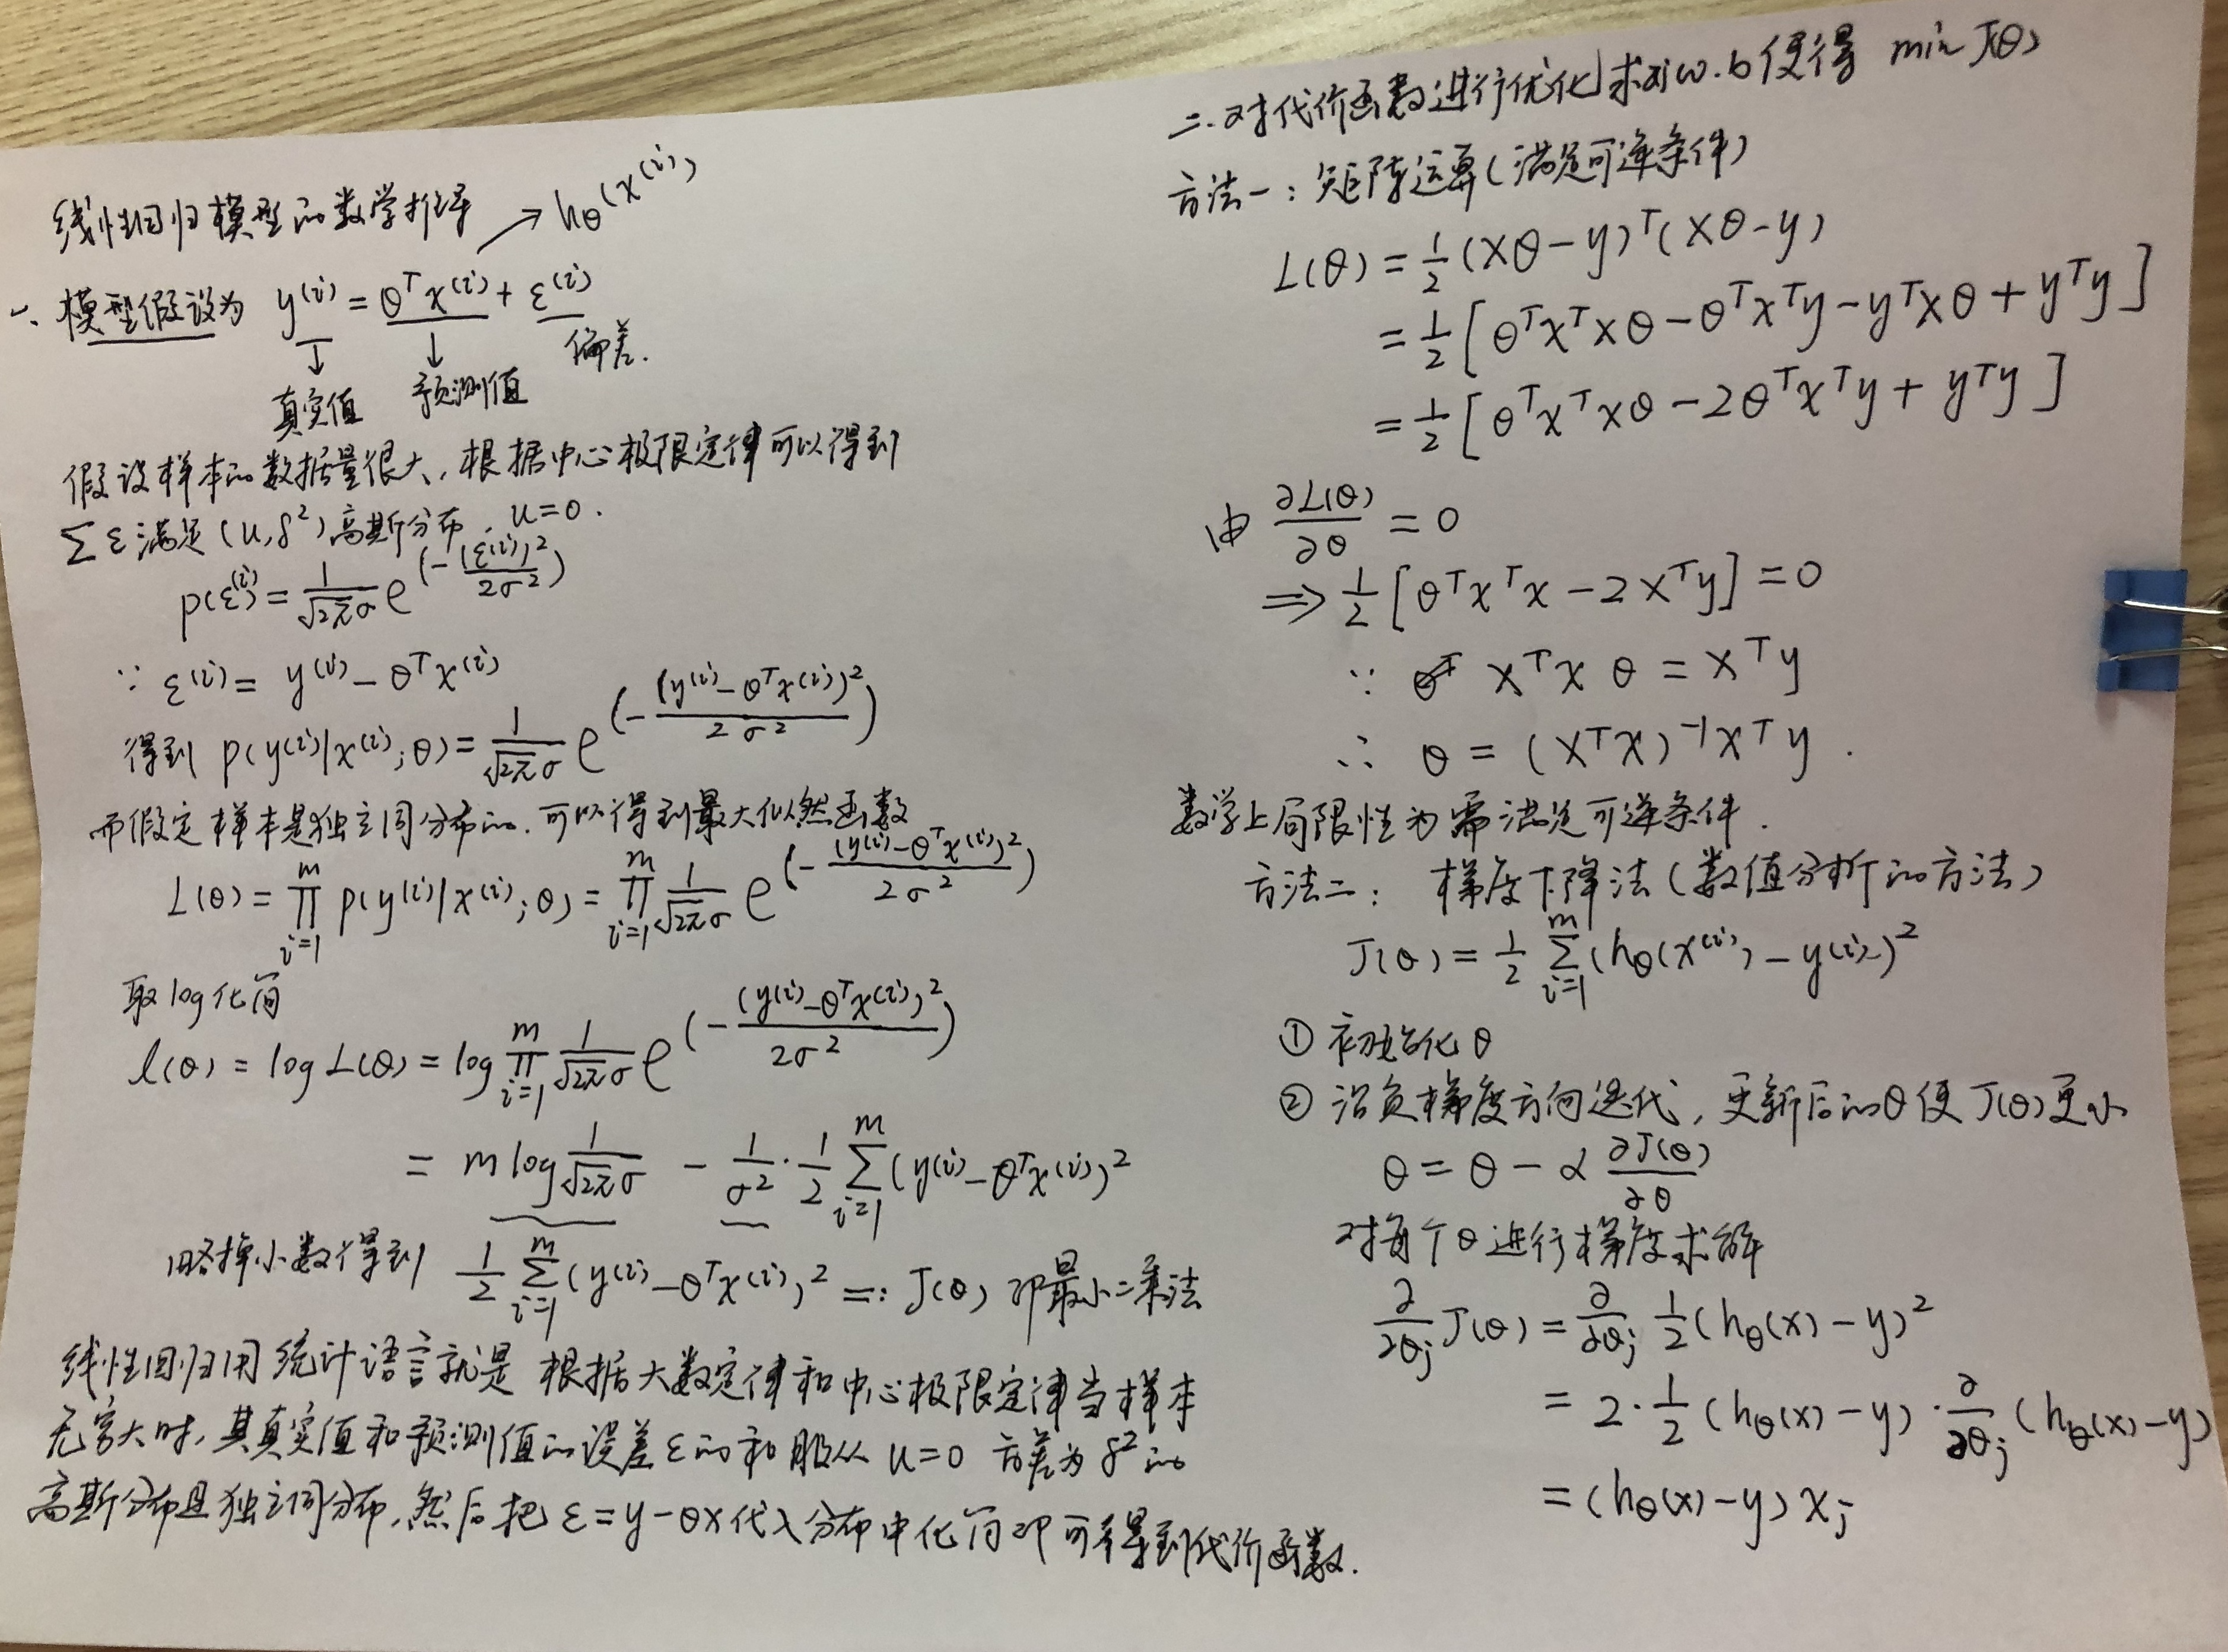 线性回归模型的数学推导 → hθ(x⁽ⁱ⁾)
一、模型假设为 y⁽ⁱ⁾ = θᵀx⁽ⁱ⁾ + ε⁽ⁱ⁾
↓ ↓ 偏差.
真实值 预测值
假设样本的数据量很大,根据中心极限定律可以得到
∑ε满足(u,δ²)高斯分布,u=0.
p(ε⁽ⁱ⁾) = 1/(√2π σ) e^(-(ε⁽ⁱ⁾)²/2σ²)
∵ ε⁽ⁱ⁾ = y⁽ⁱ⁾ - θᵀx⁽ⁱ⁾
得到 p(y⁽ⁱ⁾|x⁽ⁱ⁾;θ) = 1/(√2π σ) e^(-(y⁽ⁱ⁾-θᵀx⁽ⁱ⁾)²/2σ²)
而假定样本是独立同分布的.可以得到最大似然函数
L(θ) = ∏_{i=1}^{m} p(y⁽ⁱ⁾|x⁽ⁱ⁾;θ) = ∏_{i=1}^{m} 1/(√2π σ) e^(-(y⁽ⁱ⁾-θᵀx⁽ⁱ⁾)²/2σ²)
取log化简
l(θ) = log L(θ) = log ∏_{i=1}^{m} 1/(√2π σ) e^(-(y⁽ⁱ⁾-θᵀx⁽ⁱ⁾)²/2σ²)
= m log 1/(√2π σ) - 1/σ² · 1/2 ∑_{i=1}^{m} (y⁽ⁱ⁾-θᵀx⁽ⁱ⁾)²
略掉小数得到 1/2 ∑_{i=1}^{m} (y⁽ⁱ⁾-θᵀx⁽ⁱ⁾)² =: J(θ) 即最小二乘法
线性回归用统计语言就是 根据大数定律和中心极限定律当样本
无穷大时,其真实值和预测值的误差ε的和服从 u=0 方差为δ²的
高斯分布且独立同分布,然后把 ε=y-θx代入分布中化简即可得到代价函数.
二.对代价函数进行优化求对w.b使得 min J(θ)
方法一:矩阵运算(满足可逆条件)
L(θ) = 1/2 (Xθ-y)ᵀ(Xθ-y)
= 1/2 [θᵀxᵀxθ - θᵀxᵀy - yᵀxθ + yᵀy]
= 1/2 [θᵀxᵀxθ - 2θᵀxᵀy + yᵀy]
由 ∂L(θ)/∂θ = 0
⇒ 1/2 [θᵀxᵀx - 2xᵀy] = 0
∵ xᵀx θ = xᵀy
∴ θ = (xᵀx)⁻¹xᵀy.
数学上局限性为需满足可逆条件.
方法二: 梯度下降法(数值分析的方法)
J(θ) = 1/2 ∑_{i=1}^{m} (hθ(x⁽ⁱ⁾) - y⁽ⁱ⁾)²
① 初始化θ
② 沿负梯度方向迭代,更新后的θ使J(θ)更小
θ = θ - α ∂J(θ)/∂θ
对每个θ进行梯度求解
∂/∂θⱼ J(θ) = ∂/∂θⱼ 1/2 (hθ(x)-y)²
= 2·1/2 (hθ(x)-y)·∂/∂θⱼ (hθ(x)-y)
= (hθ(x)-y)xⱼ